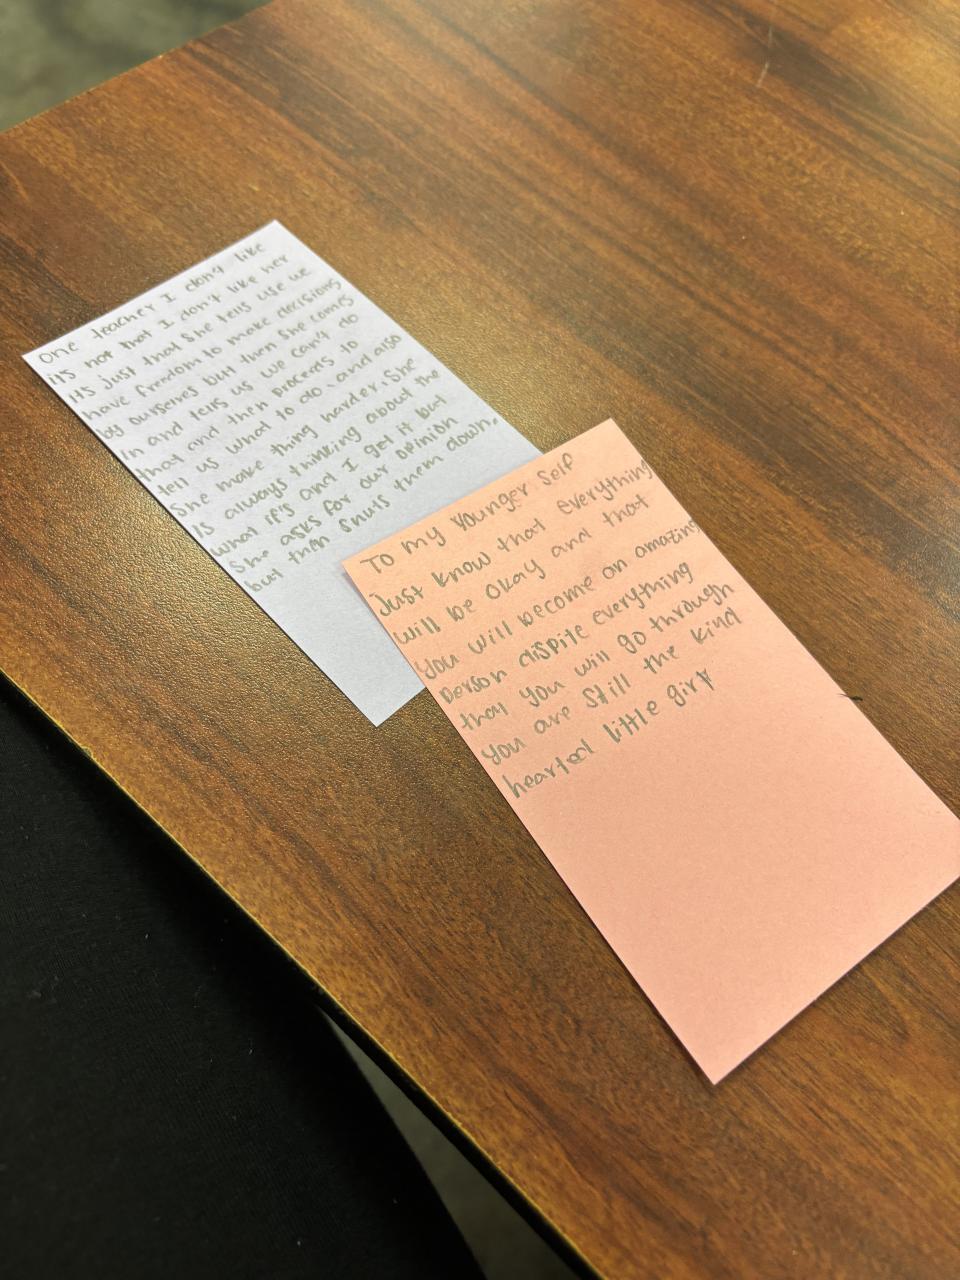 One teacher I don't like
it's not that I don't like her
its just that She tells use we
have freedom to make decisions
by ourselves but then She comes
in and tells us we can't do
that and then procceds to
tell us what to do, and also
She make thing harder, She
is always thinking about the
what if's and I get it but
She asks for our opinion
but then Shuts them down.
To my Younger Self
Just know that everything
will be okay and that
you will become an amazing
person dispite everything
that you will go through
you are Still the kind
hearted little girl